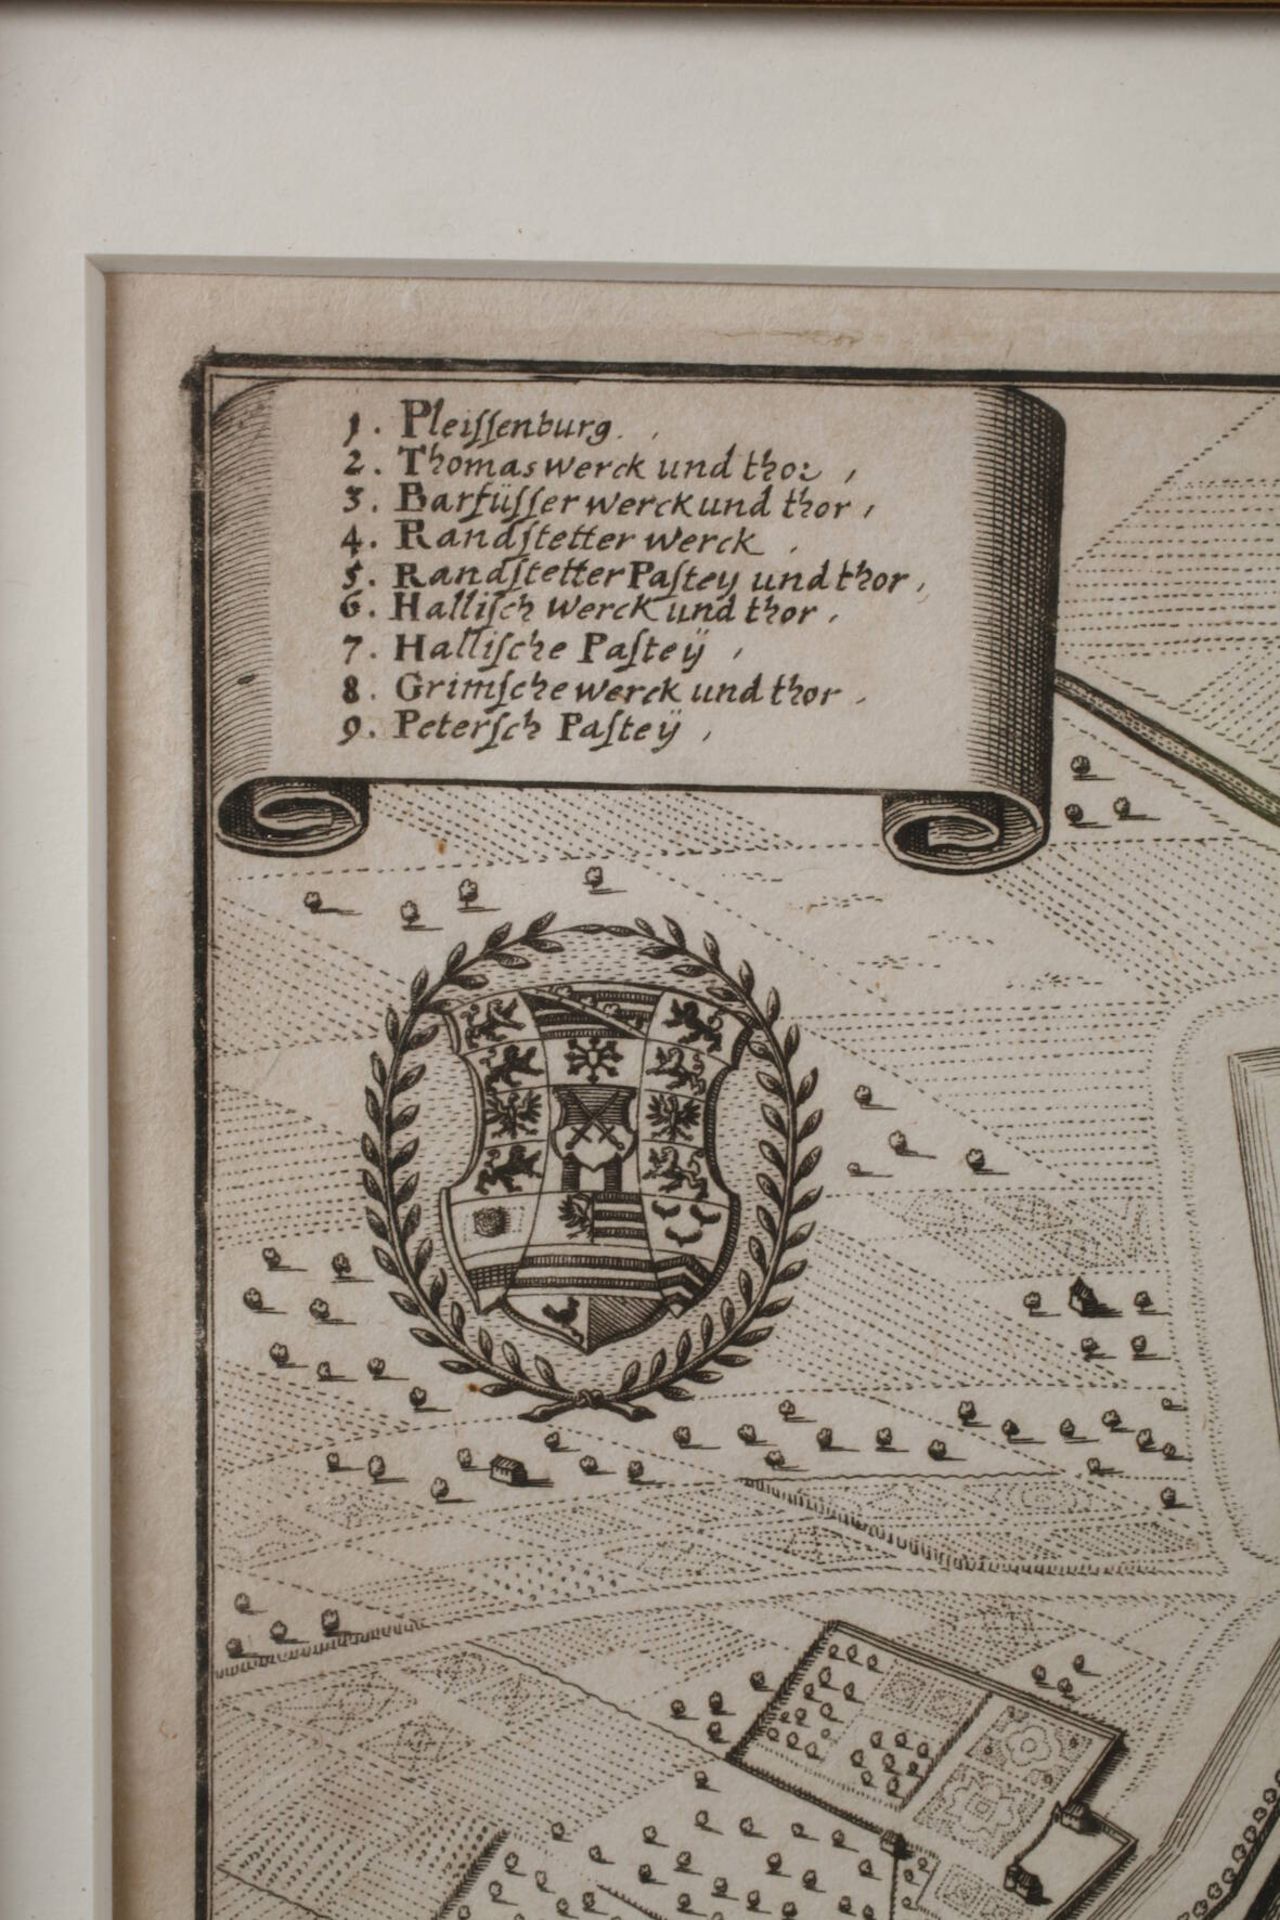 1. Pleiſſenburg.
2. Thomas werck und thor,
3. Barfüſſer werck und thor,
4. Randſtetter werck.
5. Randſtetter Paſtey und thor,
6. Halliſch werck und thor,
7. Halliſche Paſteÿ,
8. Grimſche werck und thor.
9. Peterſch Paſteÿ,